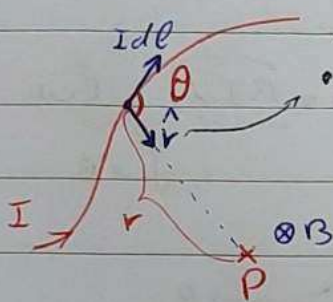 Idl
θ
r̂
I
r
⊗B
P